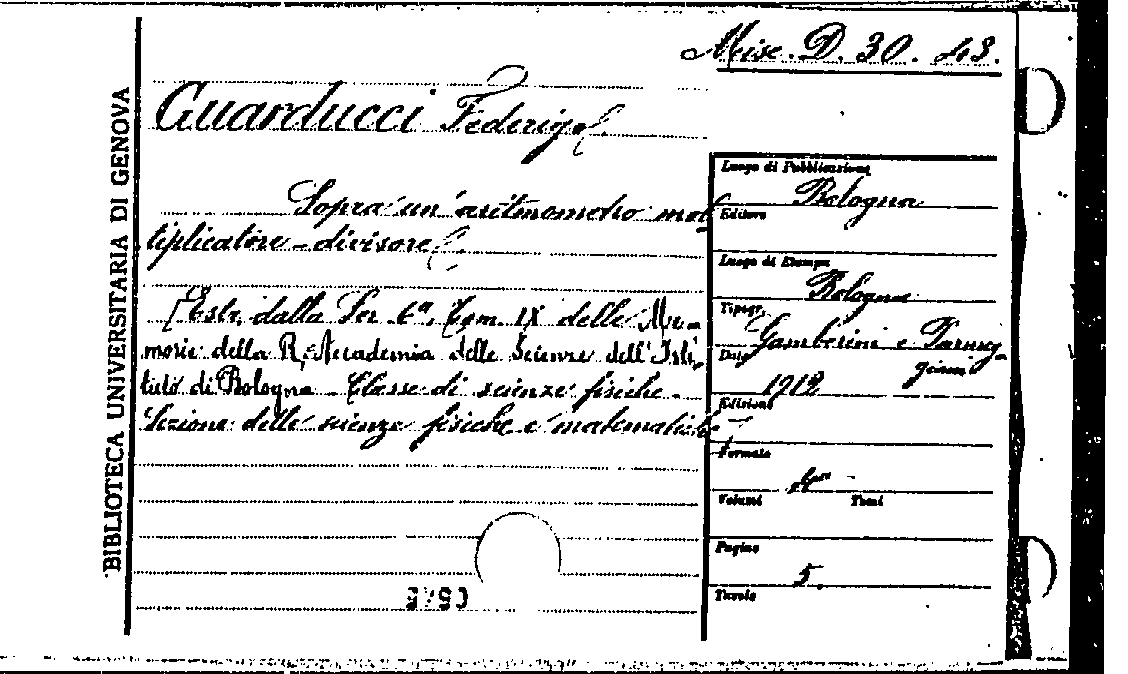 Misc. D. 30. 43.
BIBLIOTECA UNIVERSITARIA DI GENOVA
Guarducci Federigo
Sopra un' aritmometro mol
tiplicatore-divisore
[Estr. dalla Ser. 6ª, Tom. IX delle Me-
morie della R. Accademia delle Scienze dell' Isti-
tuto di Bologna - Classe di scienze fisiche -
Sezione delle scienze fisiche e matematiche
Luogo di Pubblicazione
Bologna
Editore
Luogo di Stampa
Bologna
Tipogr.
Gamberini e Parmeg-
giani
Data
1912
Edizione
Formato
4°
Volumi Tomi
Pagine
5.
Tavole